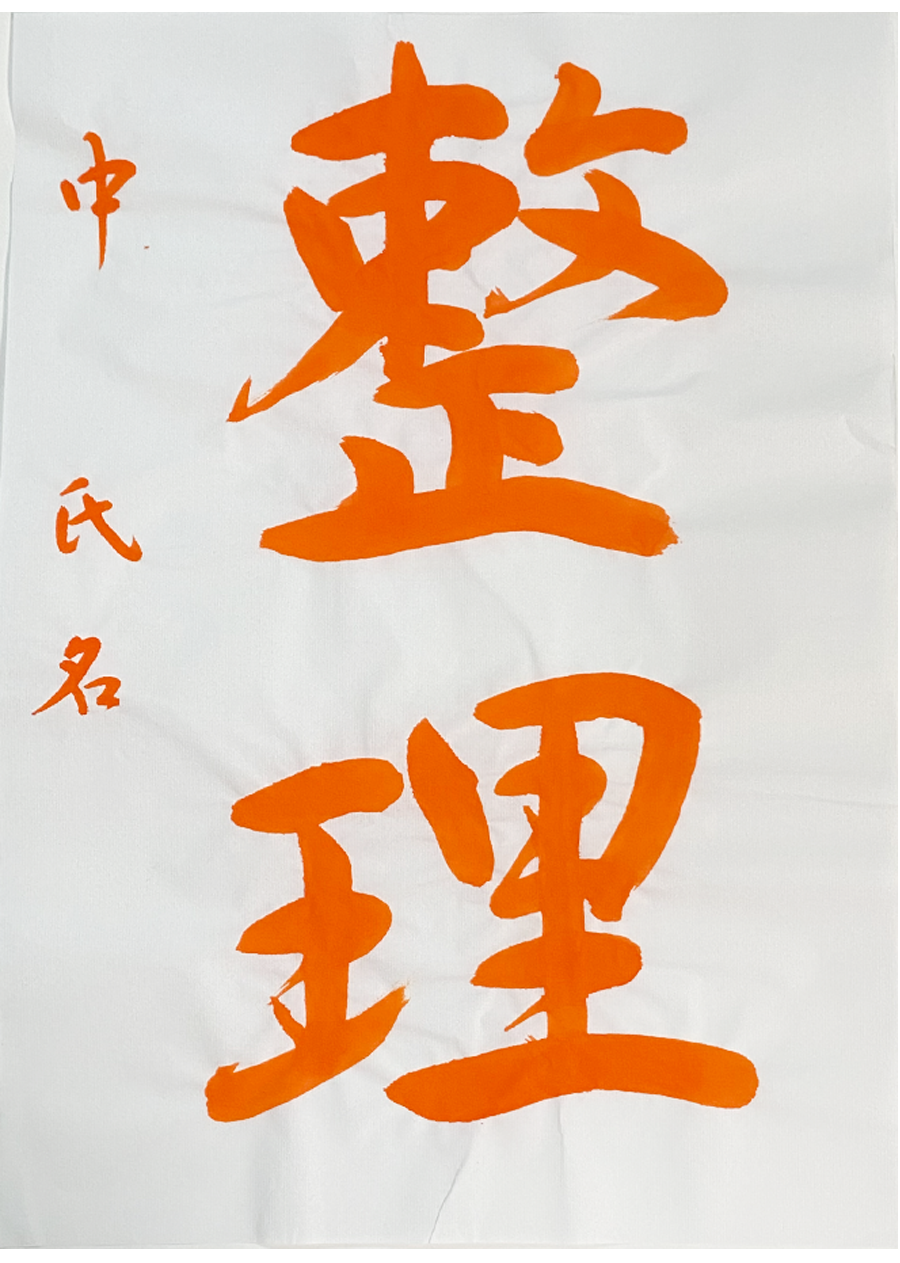 整理
中 氏名